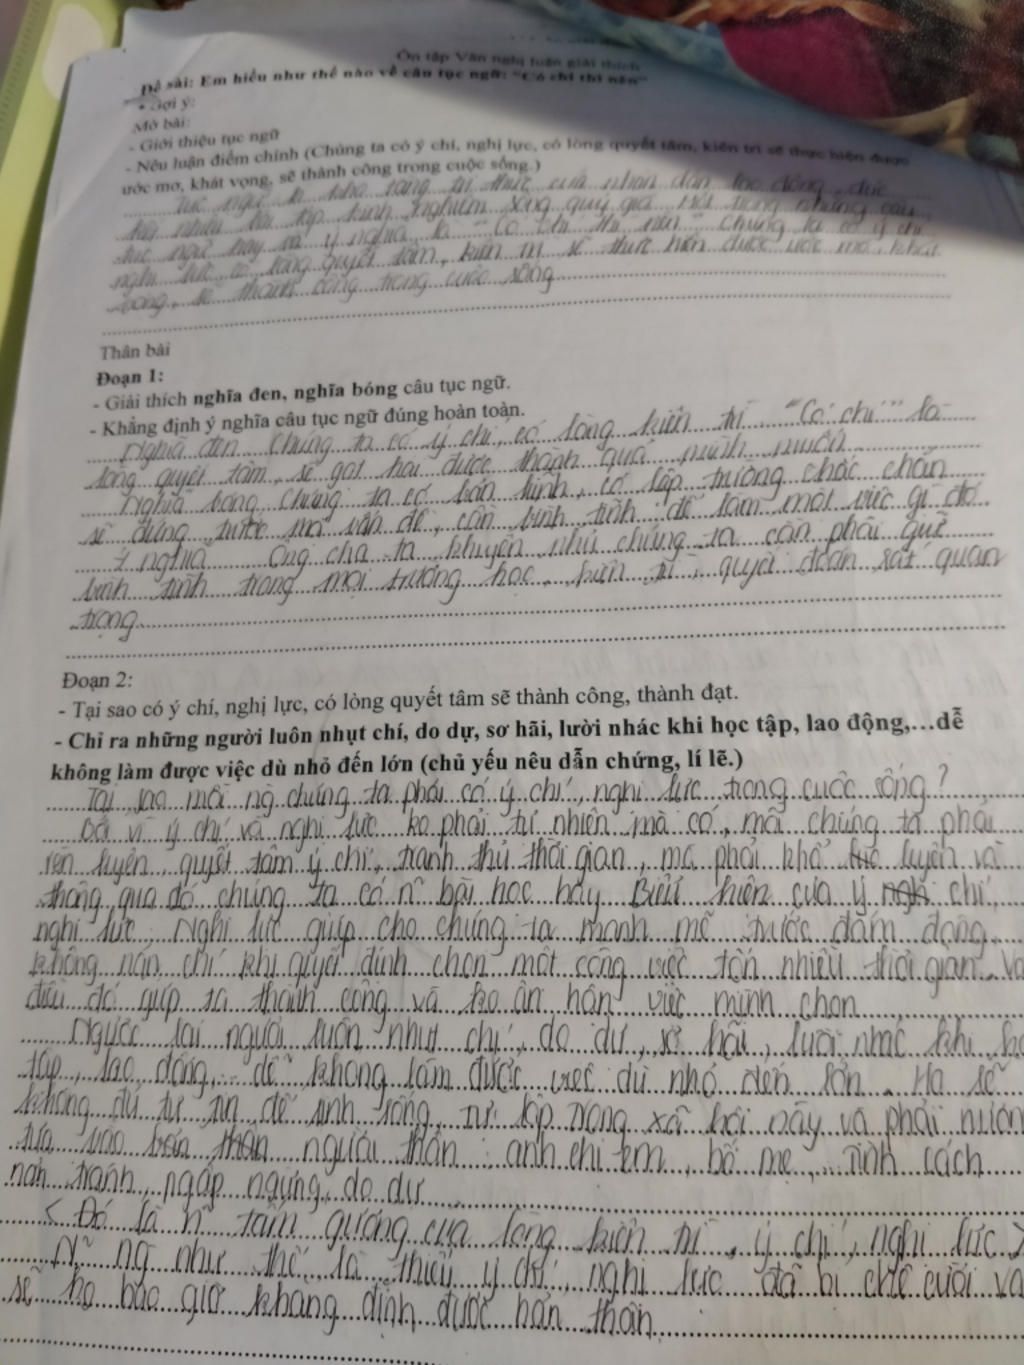 Ôn tập Văn nghị luận giải thích
Đề bài: Em hiểu như thế nào về câu tục ngữ: "Có chí thì nên"
* Gợi ý:
Mở bài:
- Giới thiệu tục ngữ
- Nêu luận điểm chính (Chúng ta có ý chí, nghị lực, có lòng quyết tâm, kiên trì sẽ thực hiện được
ước mơ, khát vọng, sẽ thành công trong cuộc sống.)
Tục ngữ là kho tàng tri thức của nhân dân lao động, đúc
kết nhiều bài tập kinh nghiệm sống quý giá. Một trong những câu
tục ngữ hay và ý nghĩa là "Có chí thì nên". Chúng ta có ý chí
nghị lực, có lòng quyết tâm, kiên trì sẽ thực hiện được ước mơ, khát
vọng, sẽ thành công trong cuộc sống
Thân bài
Đoạn 1:
- Giải thích nghĩa đen, nghĩa bóng câu tục ngữ.
- Khẳng định ý nghĩa câu tục ngữ đúng hoàn toàn.
Nghĩa đen chúng ta có ý chí, có lòng kiên trì "Có chí" là
lòng quyết tâm, sẽ gặt hái được thành quả mình muốn
Nghĩa bóng chúng ta có bản lĩnh, có lập trường chắc chắn
sẽ đứng trước mọi vấn đề, cần bình tĩnh để làm một việc gì đó
Ý nghĩa Ông cha ta khuyên nhủ chúng ta cần phải
bình tĩnh trong mọi trường học, kiên trì, quyết đoán rất quan
trọng
Đoạn 2:
- Tại sao có ý chí, nghị lực, có lòng quyết tâm sẽ thành công, thành đạt.
- Chỉ ra những người luôn nhụt chí, do dự, sơ hãi, lười nhác khi học tập, lao động,...dễ
không làm được việc dù nhỏ đến lớn (chủ yếu nêu dẫn chứng, lí lẽ.)
Tại sao mỗi ng chúng ta phải có ý chí, nghị lực trong cuộc sống?
bởi vì ý chí và nghị lực ko phải tự nhiên mà có, mỗi chúng ta phải
rèn luyện, quyết tâm ý chí, tranh thủ thời gian, mà phải khổ luyện và
thông qua đó chúng ta có n~ bài học hay Biểu hiện của ý chí,
nghị lực, Nghị lực giúp cho chúng ta mạnh mẽ trước đám đông,
không nản chí khi quyết định chọn một công việc tốn nhiều thời gian và
điều đó giúp ta thành công và ko ân hận việc mình chọn
Ngược lại người luôn nhụt chí, do dự, sợ hãi, lười nhác khi họ
tập, lao động,... dễ không làm được việc dù nhỏ đến lớn. Họ sẽ
không đủ tự tin để sinh sống, tự lập trong xã hội này và phải nươn
tựa vào bên thân người thân: anh chị em, bố mẹ,... Tính cách
nản tránh, ngập ngừng, do dự
< Đó là n~ tấm gương của lòng kiên trì, ý chí, nghị lực >
N~ ng như thế là thiếu ý chí, nghị lực đã bị chê cười và
sẽ ko bao giờ khẳng định được bản thân